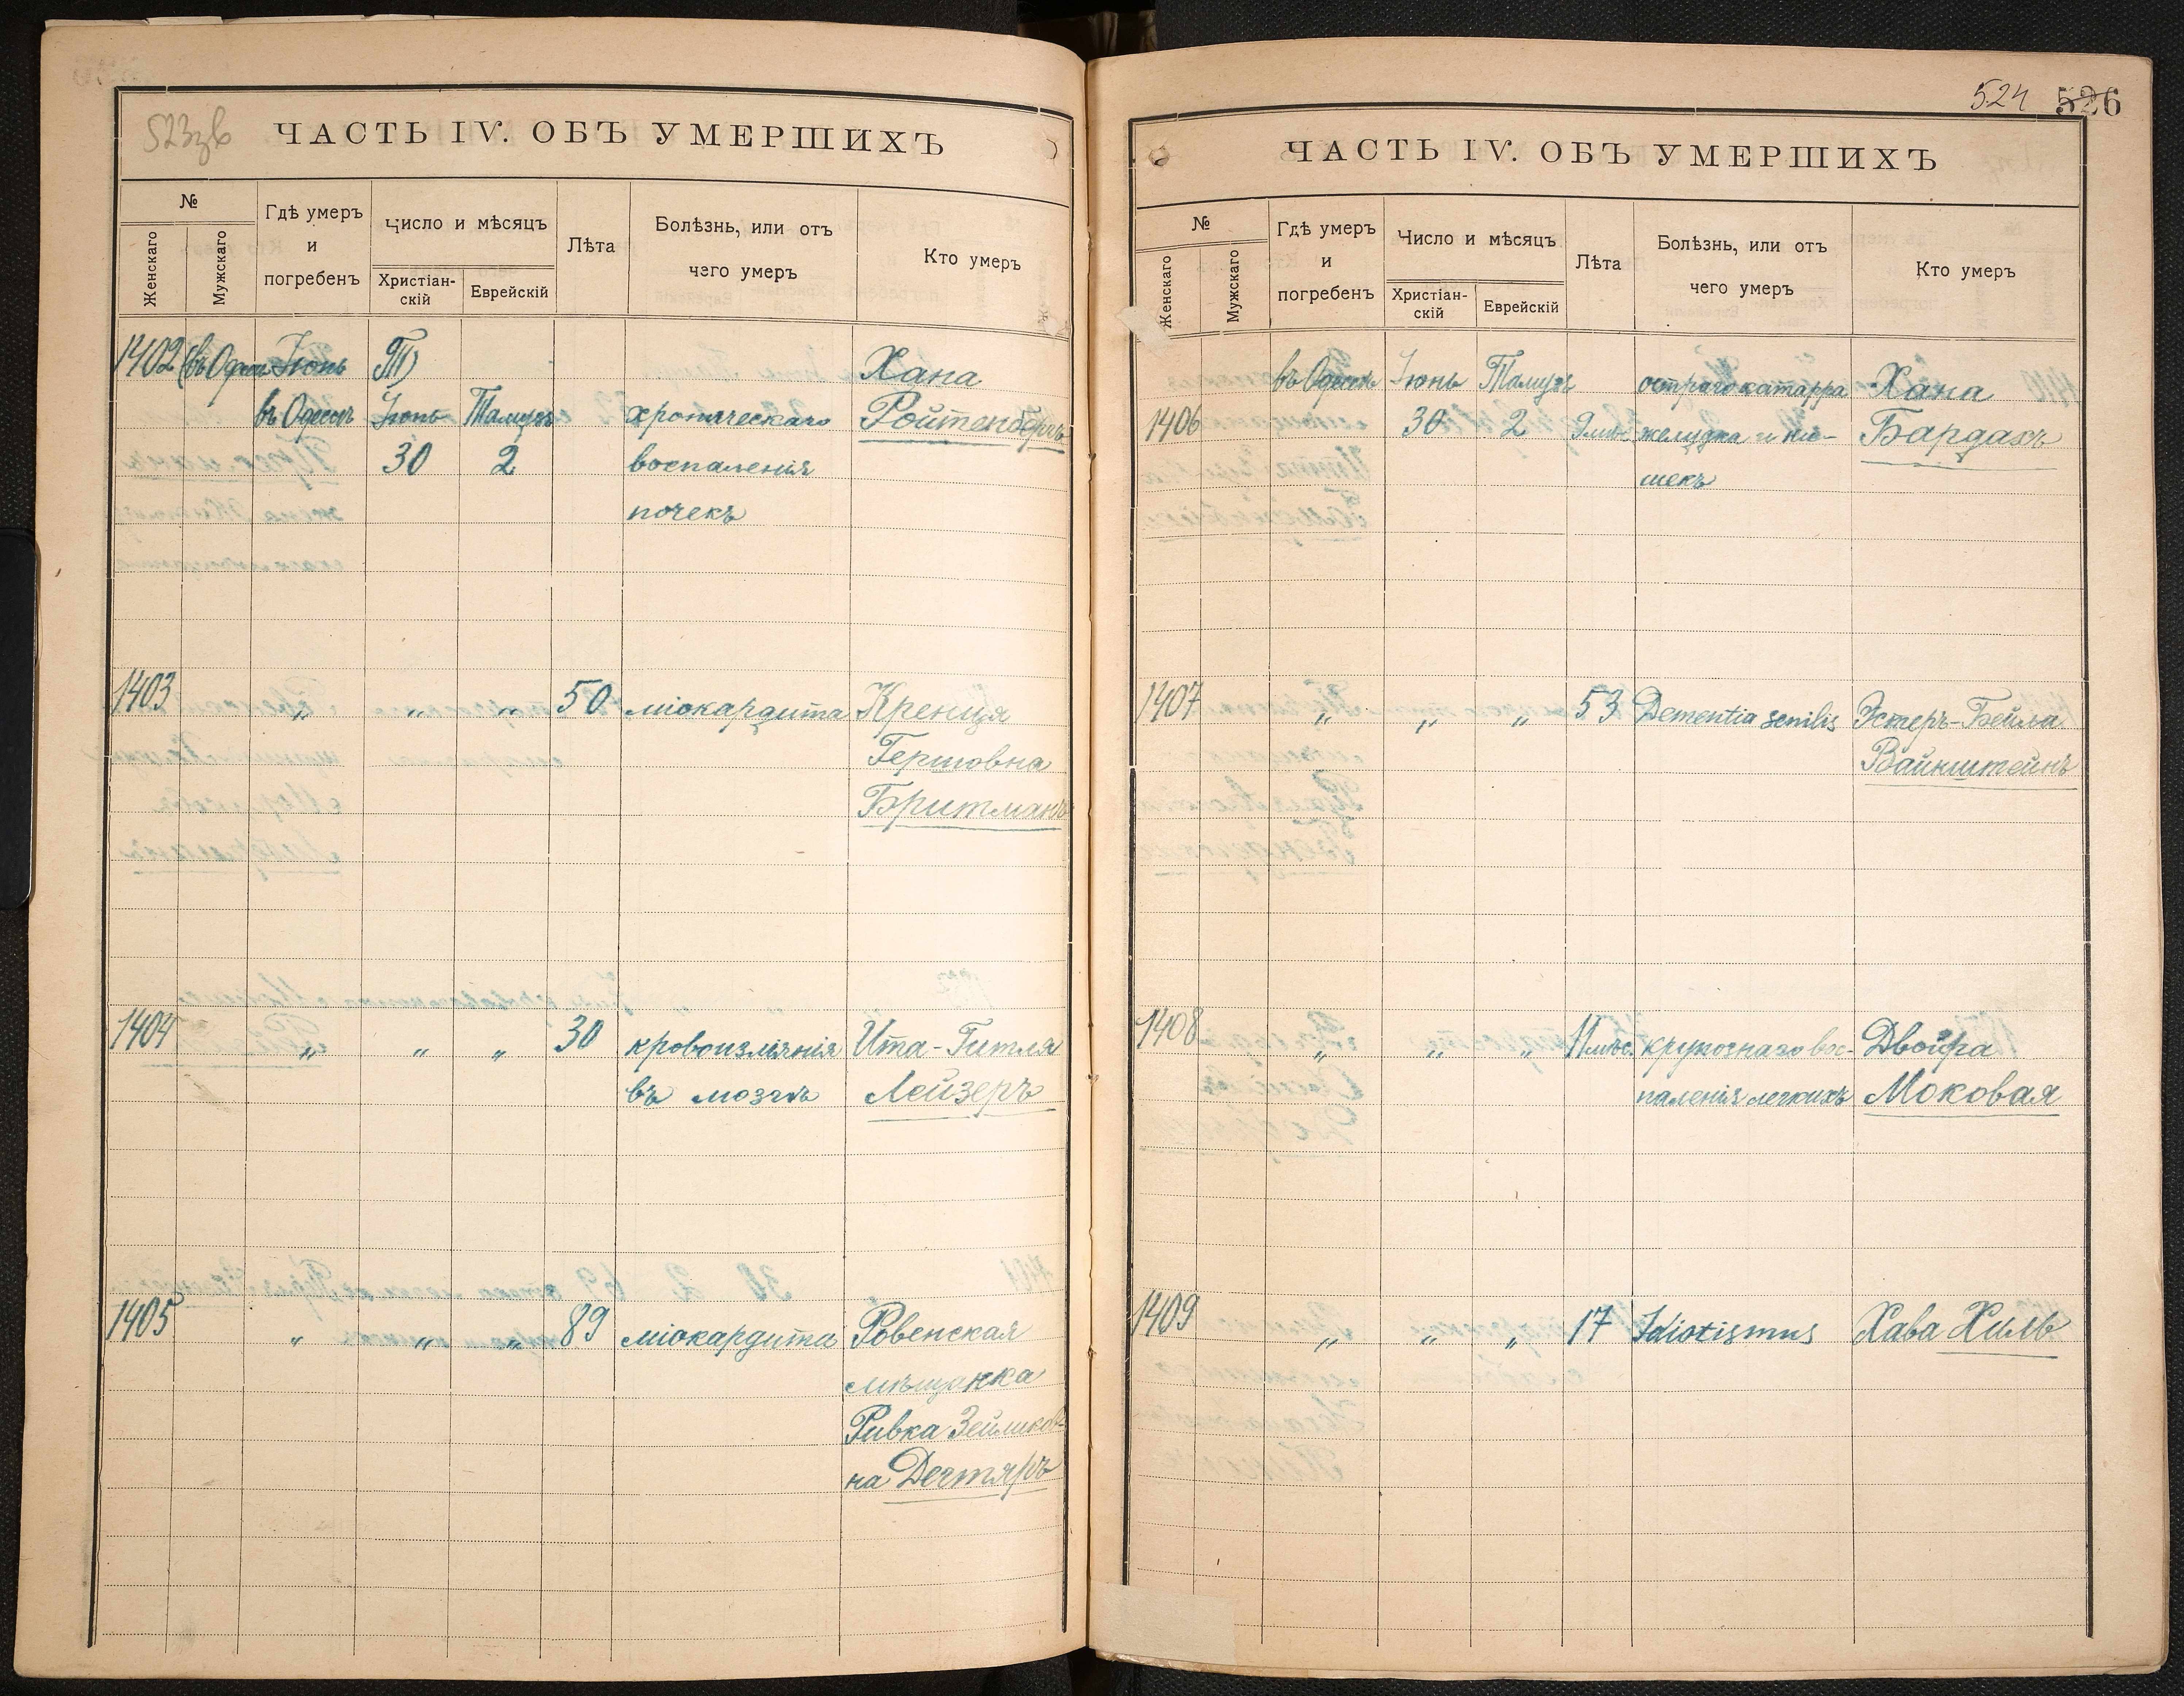 523зв
ЧАСТЬ IV. ОБЪ УМЕРШИХЪ
№
Женскаго
Мужскаго
Гдѣ умеръ
и
погребенъ
Число и мѣсяцъ
Христіан-
скій
Еврейскій
Лѣта
Болѣзнь, или отъ
чего умеръ
Кто умеръ
1402 Іюнь Хана
въ Одессѣ Іюнь Тамузъ хроническаго Ройтенбергъ
30 2 воспаленія
почекъ
1403 „ „ „ 50 міокардита Кренця
Гершовна
Бритманъ
1404 „ „ „ 30 кровоизліянія Ита-Гитля
въ мозгъ Лейзеръ
1405 „ „ „ 89 міокардита Ровенская
мѣщанка
Ривка Зейликов-
на Дегтяръ
524 526
ЧАСТЬ IV. ОБЪ УМЕРШИХЪ
№
Женскаго
Мужскаго
Гдѣ умеръ
и
погребенъ
Число и мѣсяцъ
Христіан-
скій
Еврейскій
Лѣта
Болѣзнь, или отъ
чего умеръ
Кто умеръ
въ Одессѣ Іюнь Тамузъ остраго катарра Хана
1406 30 2 9 мѣс. желудка и ки- Бардахъ
шекъ
1407 „ „ „ 53 Dementia senilis Эстеръ-Бейла
Вайнштейнъ
1408 „ „ „ 11 мѣс. крупознаго вос- Двойра
паленія легкихъ Моковая
1409 „ „ „ 17 Idiotismus Хава Хиль